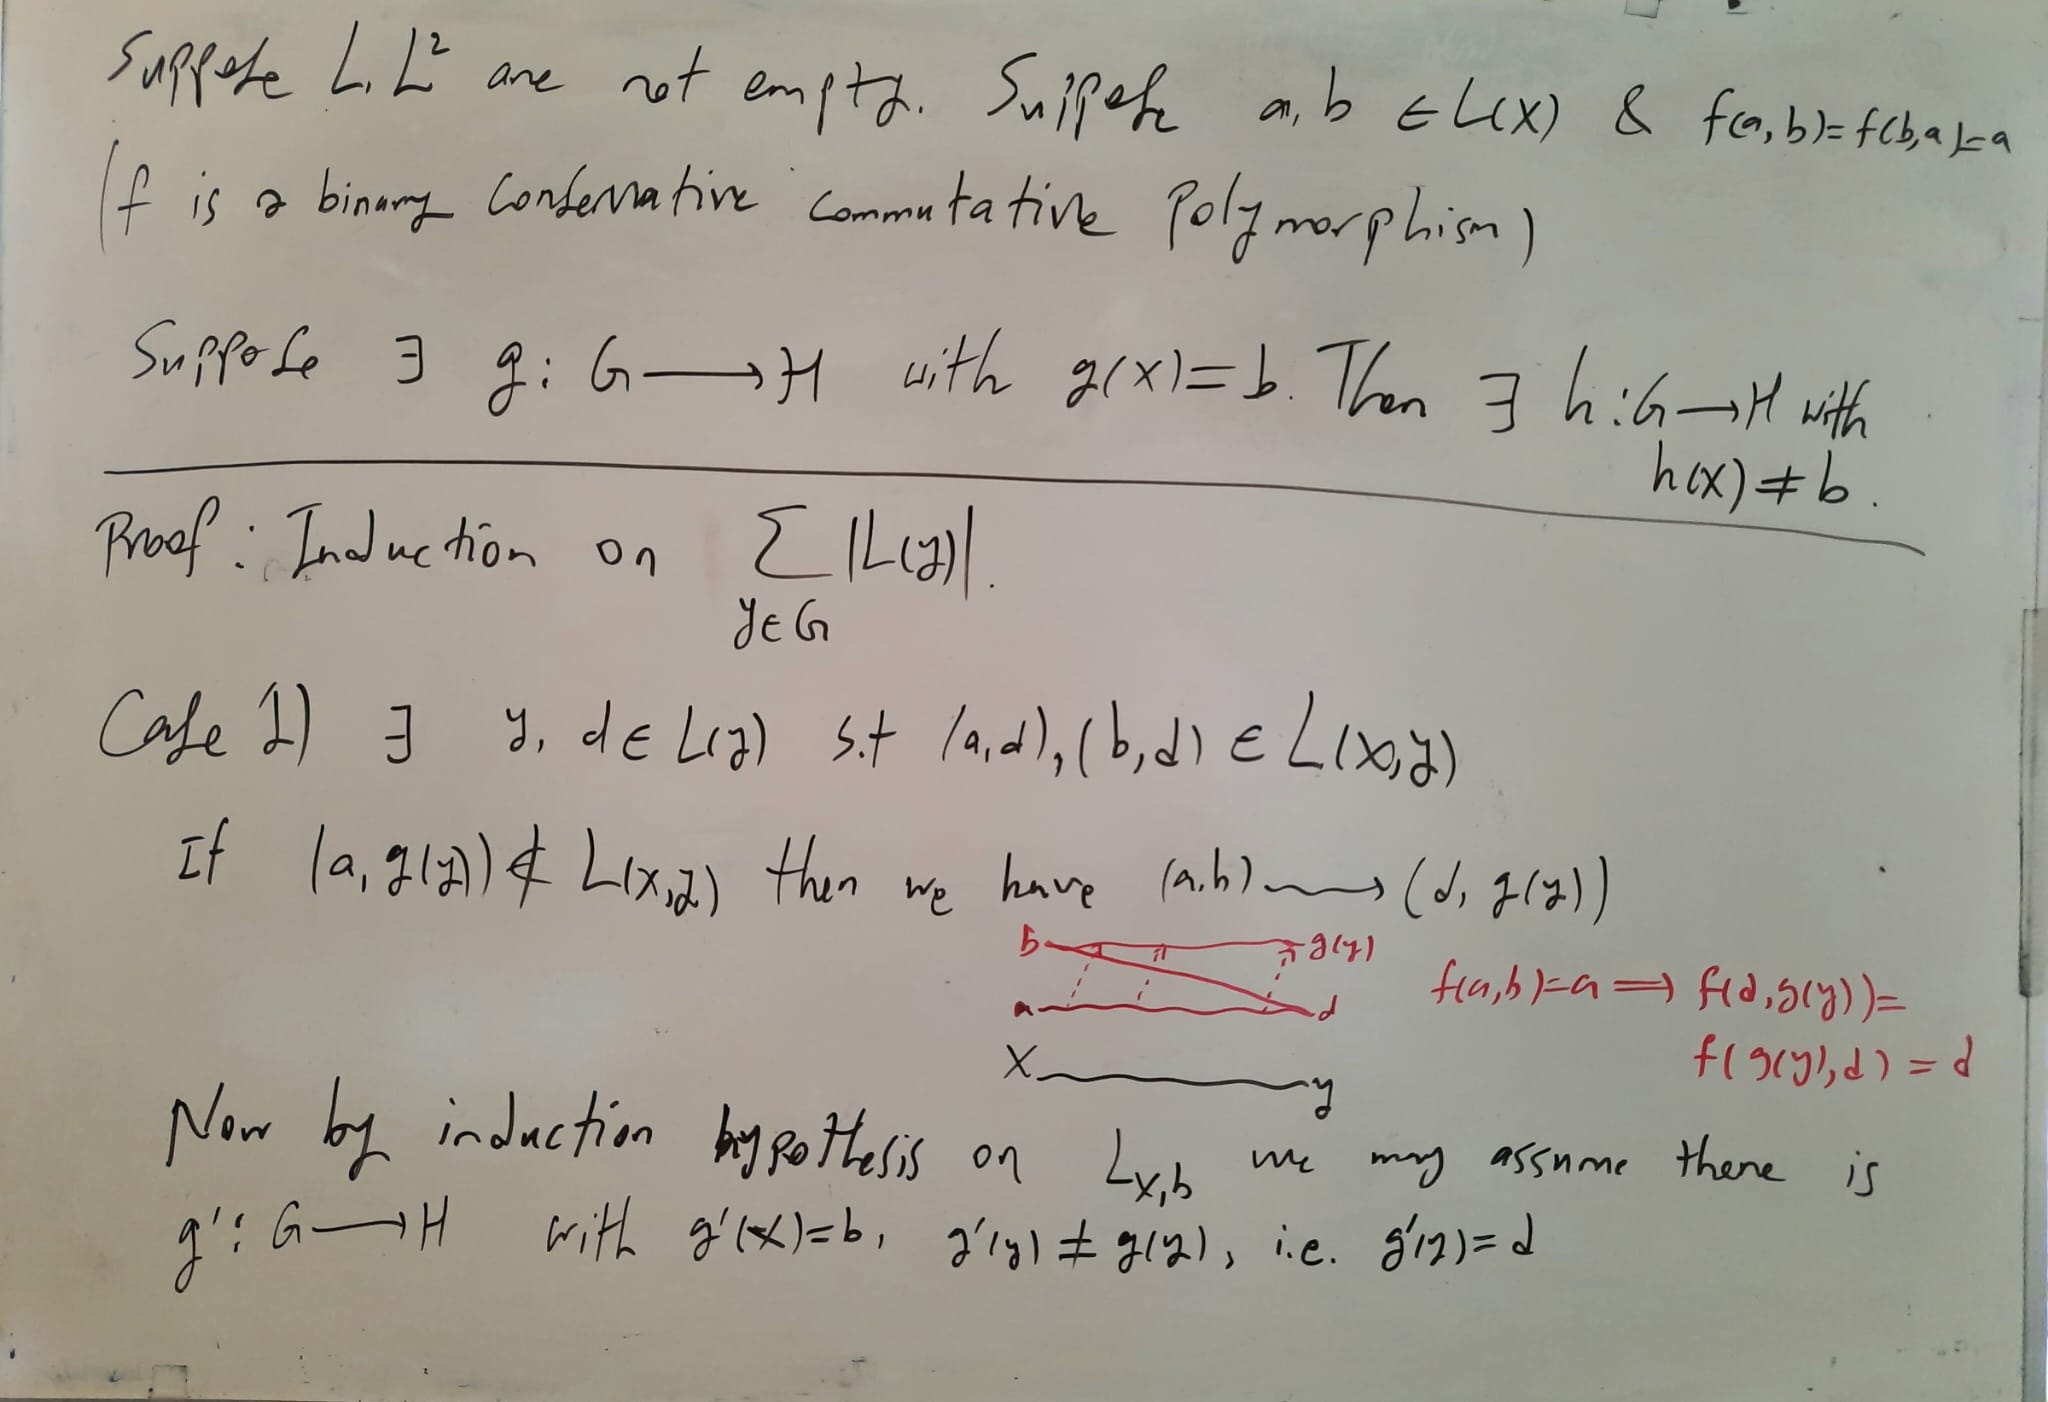 Suppose L, L² are not empty. Suppose a, b ∈ L(X) & f(a,b)=f(b,a)=a
(f is a binary conservative commutative polymorphism)
Suppose ∃ g: G ⟶ H with g(x)=b. Then ∃ h: G ⟶ H with
h(x) ≠ b.
Proof: Induction on ∑ |L(y)|.
y∈G
Case 1) ∃ y, d ∈ L(y) s.t (a,d), (b,d) ∈ L(x,y)
If (a, g(y)) ∉ L(x,y) then we have (a,b) ⇝ (d, g(y))
b g(y)
a d
f(a,b)=a ⟹ f(d,g(y))=
f(g(y),d) = d
X y
Now by induction hypothesis on L_{x,b} we may assume there is
g': G ⟶ H with g'(x)=b, g'(y) ≠ g(y), i.e. g'(y)=d